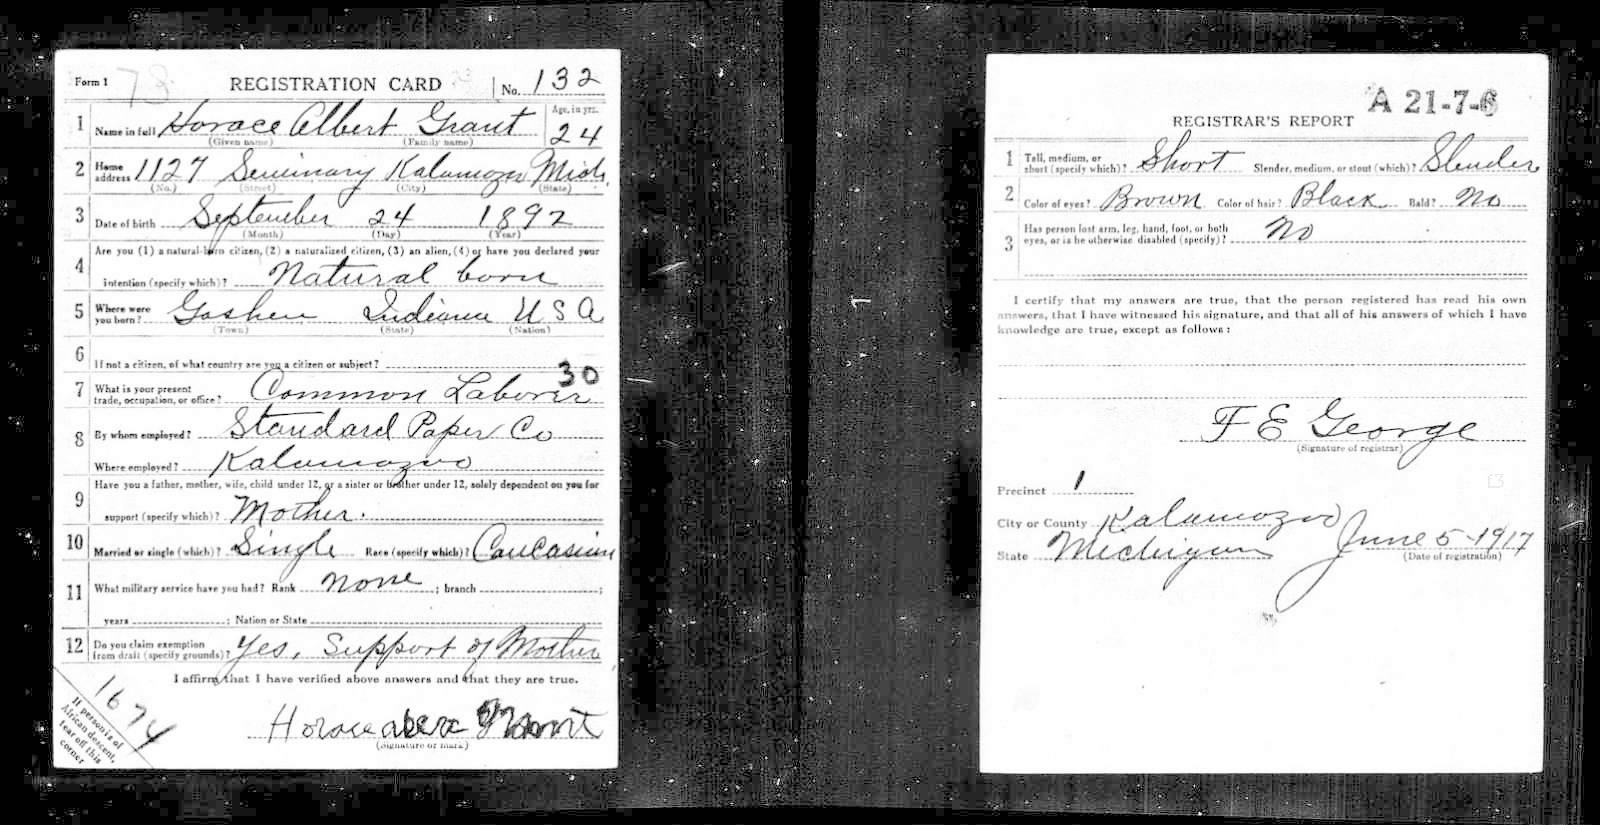 Form 1 78 REGISTRATION CARD No. 132
1 Name in full Horace Albert Grant Age, in yrs. 24
(Given name) (Family name)
2 Home address 1127 Seminary Kalamazoo Mich.
(No.) (Street) (City) (State)
3 Date of birth September 24 1892
(Month) (Day) (Year)
4 Are you (1) a natural-born citizen, (2) a naturalized citizen, (3) an alien, (4) or have you declared your
intention (specify which)? Natural born
5 Where were you born? Goshen Indiana U S A
(Town) (State) (Nation)
6 If not a citizen, of what country are you a citizen or subject?
30
7 What is your present trade, occupation, or office? Common Laborer
8 By whom employed? Standard Paper Co
Where employed? Kalamazoo
9 Have you a father, mother, wife, child under 12, or a sister or brother under 12, solely dependent on you for
support (specify which)? Mother.
10 Married or single (which)? Single Race (specify which)? Caucasian
11 What military service have you had? Rank none ; branch ;
years ; Nation or State
12 Do you claim exemption from draft (specify grounds)? Yes, Support of Mother
I affirm that I have verified above answers and that they are true.
Horace Grant
(Signature or mark)
1674
If person is of
African descent,
tear off this
corner
A 21-7-6
REGISTRAR'S REPORT
1 Tall, medium, or short (specify which)? Short Slender, medium, or stout (which)? Slender
2 Color of eyes? Brown Color of hair? Black Bald? No
3 Has person lost arm, leg, hand, foot, or both
eyes, or is he otherwise disabled (specify)? No
I certify that my answers are true, that the person registered has read his own
answers, that I have witnessed his signature, and that all of his answers of which I have
knowledge are true, except as follows:
F E George
(Signature of registrar)
Precinct 1
City or County Kalamazoo
State Michigan June 5-1917
(Date of registration)